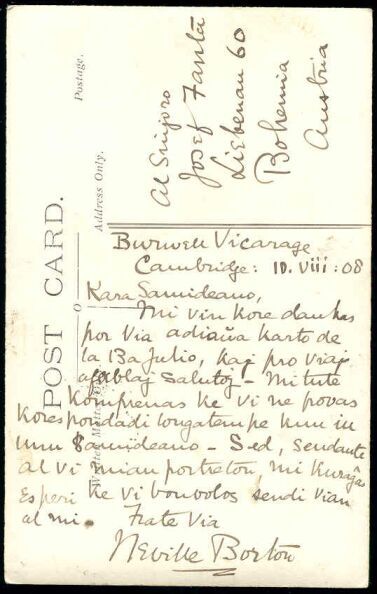 POST CARD.
Postage.
Address Only.
Al Sinjoro
Josef Fantā
Liebenau 60
Bohemia
Austria
Burwell Vicarage
Cambridge: 10. viii: 08
Kara Samideano,
Mi vin kore dankas
por via adiaŭa karto de
la 13a Julio, kaj pro viaj
afablaj salutoj - Mi tute
komprenas ke vi ne povas
korespondadi longatempe kun iu
unu samideano - Sed, sendante
al vi mian portreton, mi kuraĝas
esperi ke vi bonvolos sendi vian
al mi. Frate Via
Neville Borton